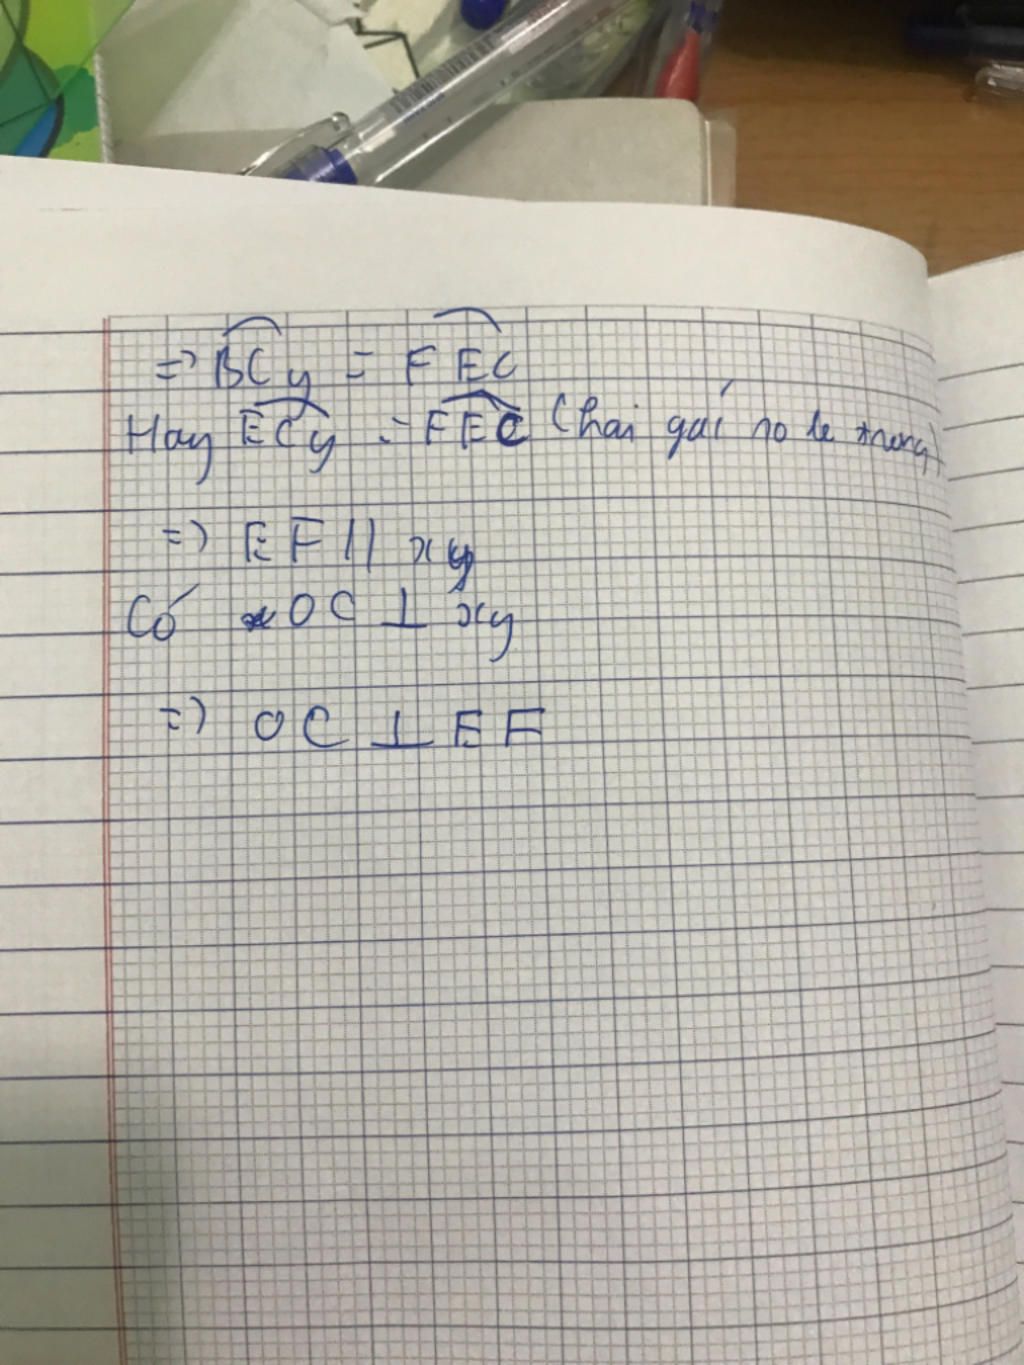 => BCy = FEC
Hay ECy = FEC (hai gúi so le trong)
=> EF // xy
Có OC ⊥ xy
=> OC ⊥ EF